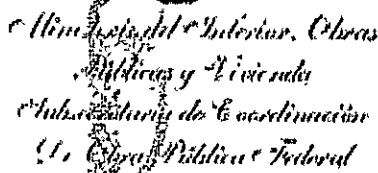 Ministerio del Interior, Obras
Públicas y Vivienda
Subsecretaria de Coordinación
de Obra Pública Federal